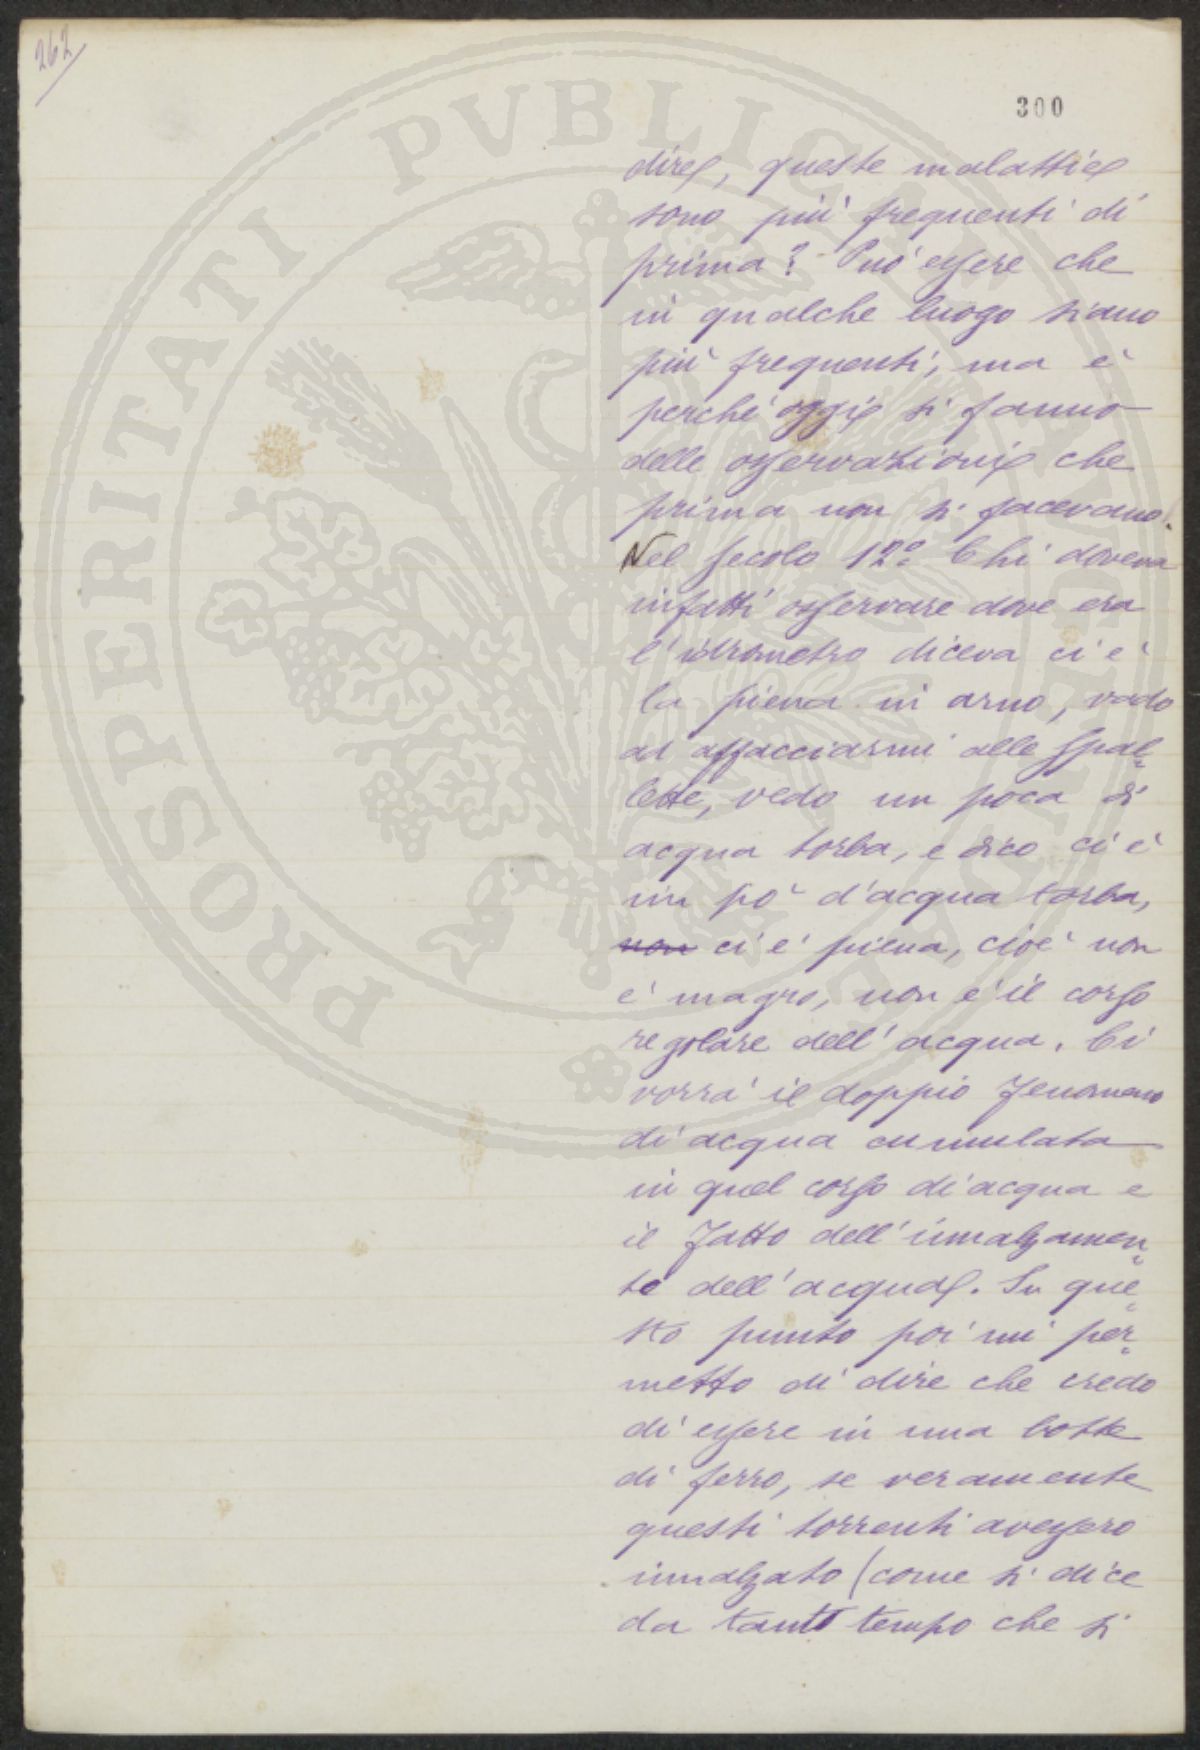 262
300
PROSPERITATI PVBLICAE
dire, queste malattie
sono più frequenti di
prima? Può essere che
in qualche luogo siano
più frequenti, ma è
perchè oggi si fanno
delle osservazioni che
prima non si facevano.
Nel secolo 12º Chi doveva
infatti osservare dove era
l'idrometro diceva ci è
la piena in arno, vado
ad affacciarmi alle spal=
lette, vedo un poca di
acqua torba, e dico ci è
un pò d'acqua torba,
non ci è piena, cioè non
è magro, non è il corso
regolare dell'acqua. Ci
vorrà il doppio fenomeno
di acqua cumulata
in quel corso di acqua e
il fatto dell'innalzamen=
to dell'acqua. Su que=
sto punto poi mi per=
metto di dire che credo
di essere in una botte
di ferro, se veramente
questi torrenti avessero
innalzato (come si dice
da tanto tempo che si